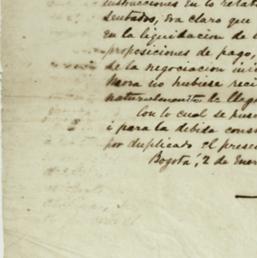 instrucciones en lo relat
sentados, era claro que
en la liquidacion de l
proposiciones de pago,
de la negociacion ini
hubiese reci
naturalmente la lleg
Con lo cual se pus
i para la debida cons
por duplicado el prese
Bogotá, 2 de Ener